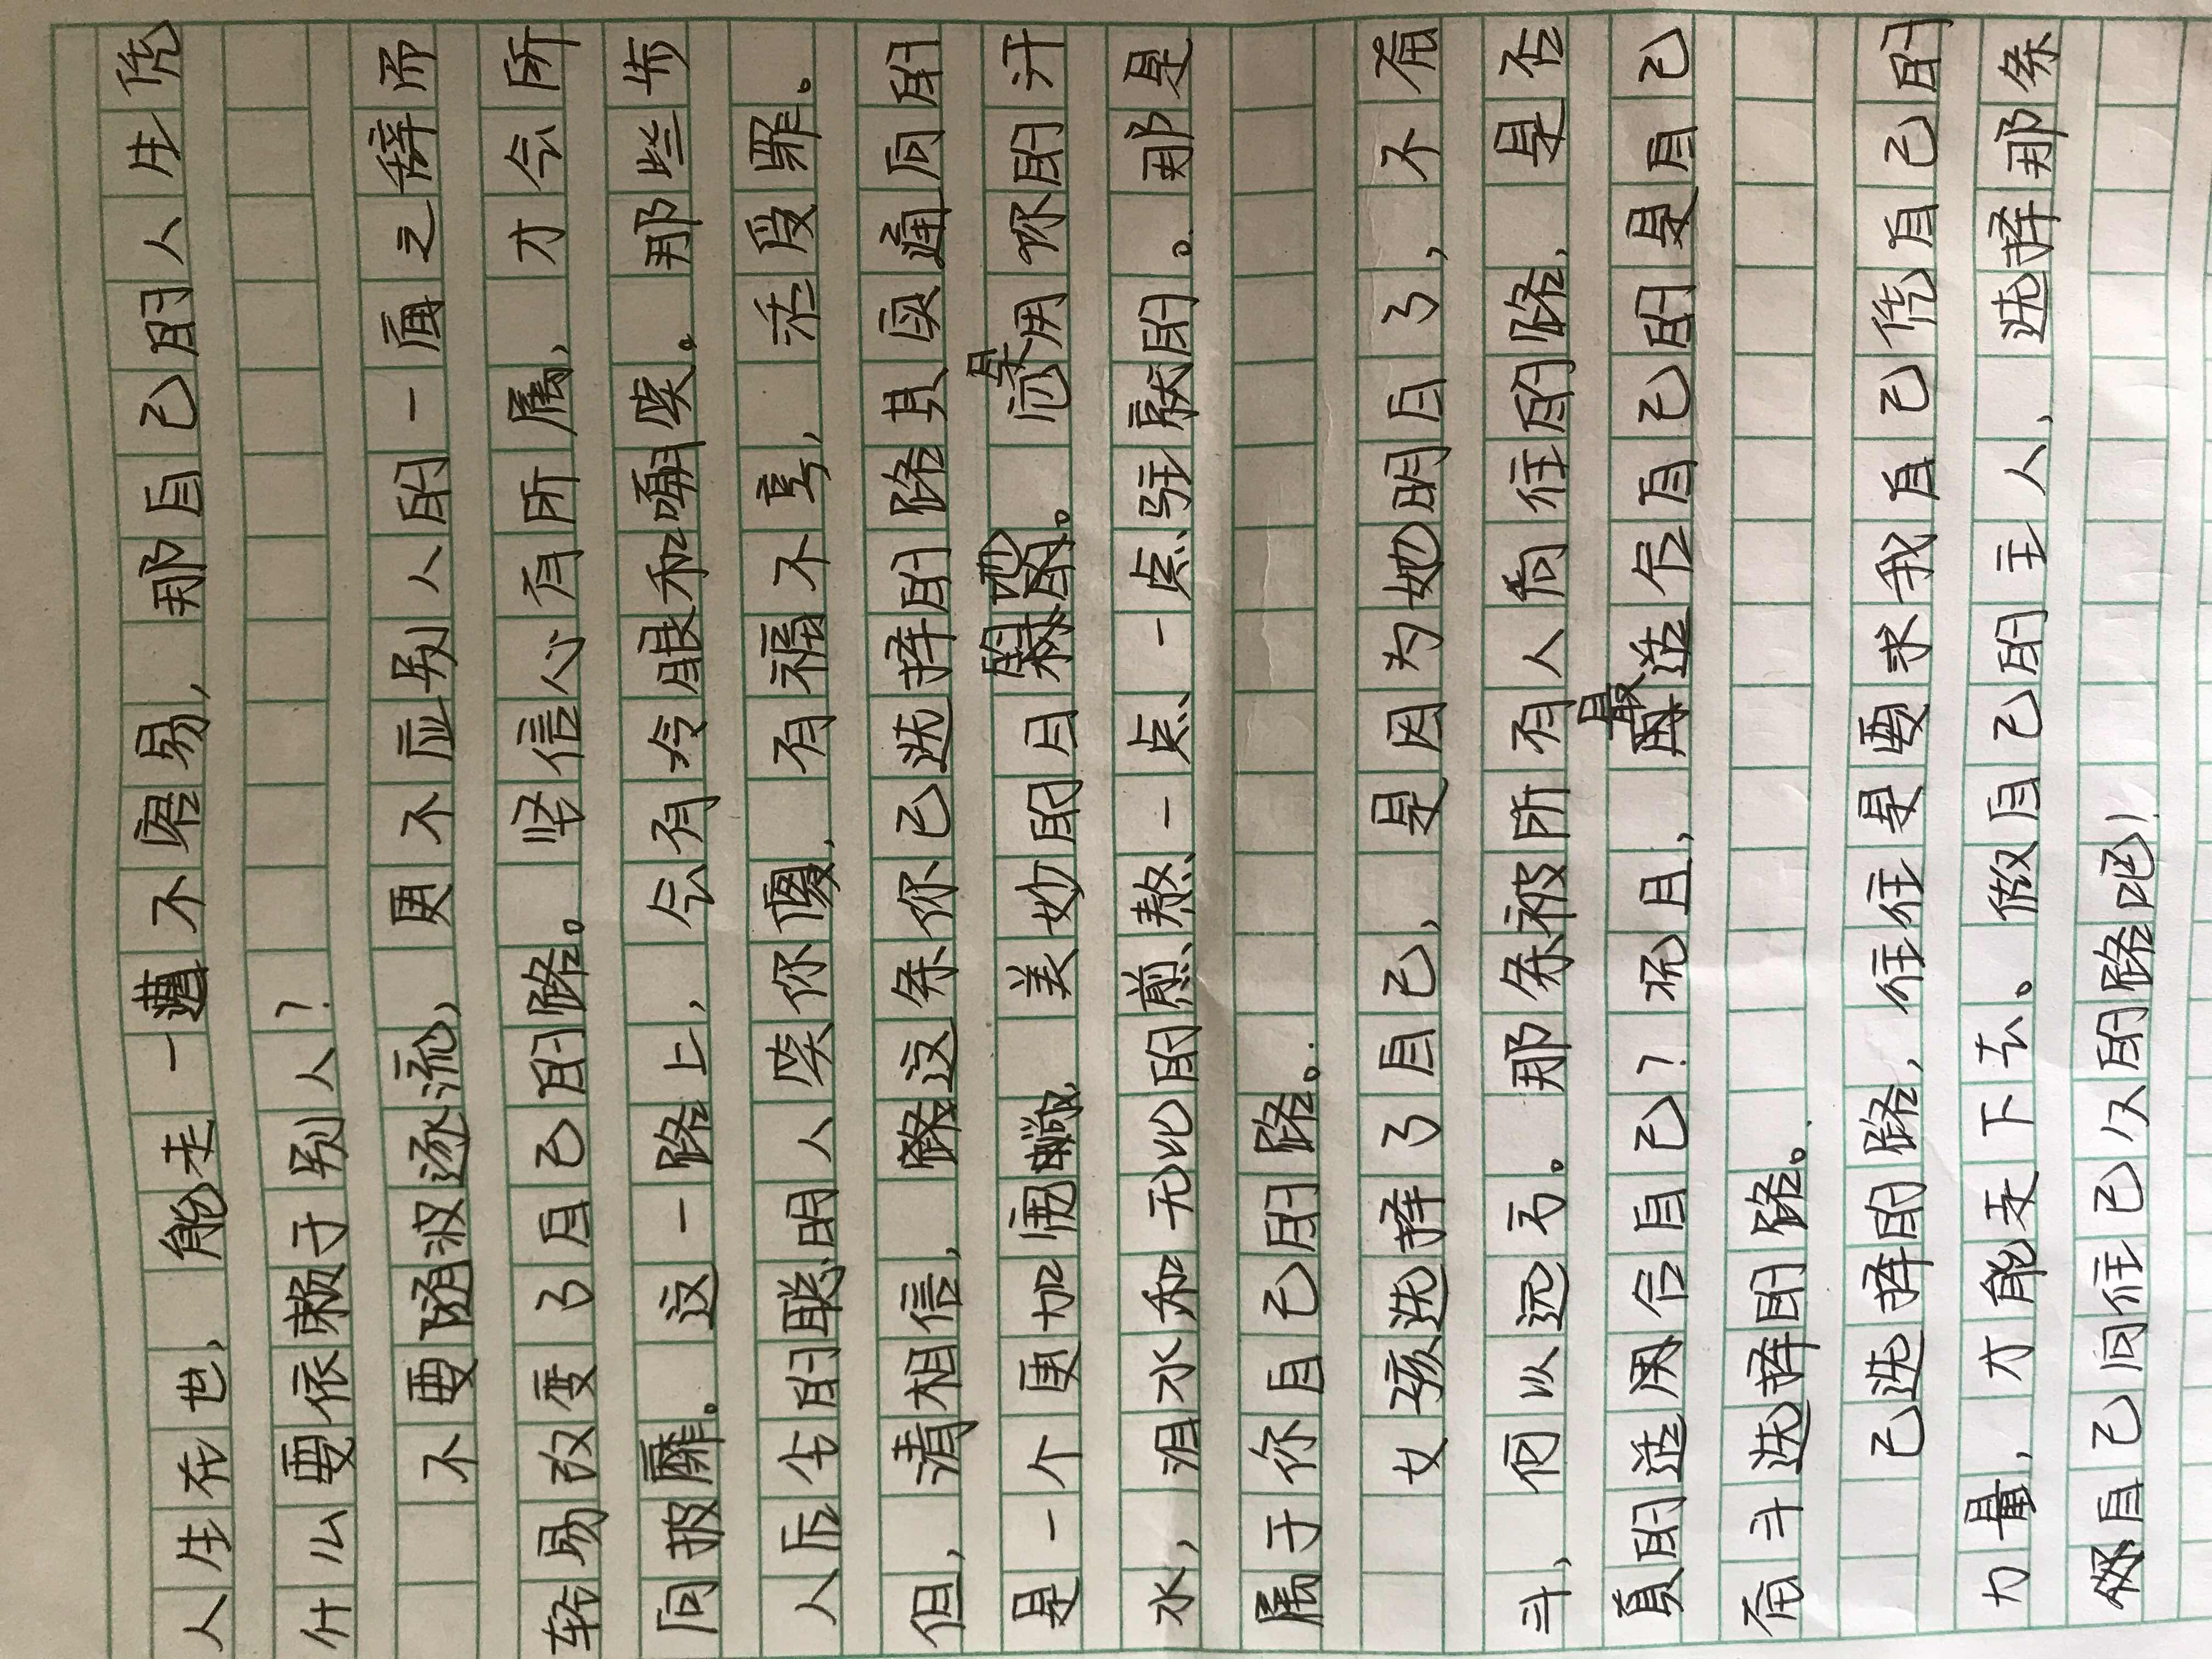 人生在世，能走一遭不容易，那自己的人生凭
什么要依赖于别人？
不要随波逐流，更不应别人的一面之辞而
轻易改变了自己的路。坚信心有所属，才会所
向披靡。这一路上，会有冷眼和嘲笑。那些步
人后尘的聪明人笑你傻，有福不享，活受罪。
但，请相信，路这条你已选择的路其实通向的
是一个更加宽敞，美妙的目的地。是用你的汗
水，泪水和无比的煎熬一点一点驻扎的。那是
属于你自己的路。
女孩选择了自己，是因为她明白了，不奋
斗，何以远方。那条被所有人向往的路，是否
真的适用合自己？况且，最适合自己的是自己
奋斗选择的路。
己选择的路，往往是要求我自己凭自己的
力量，才能走下去。做自己的主人，选择那条
你自己向往已久的路吧！